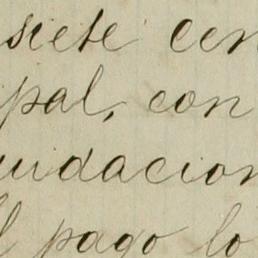 siete cen
pal, con
udacion
l pago lo